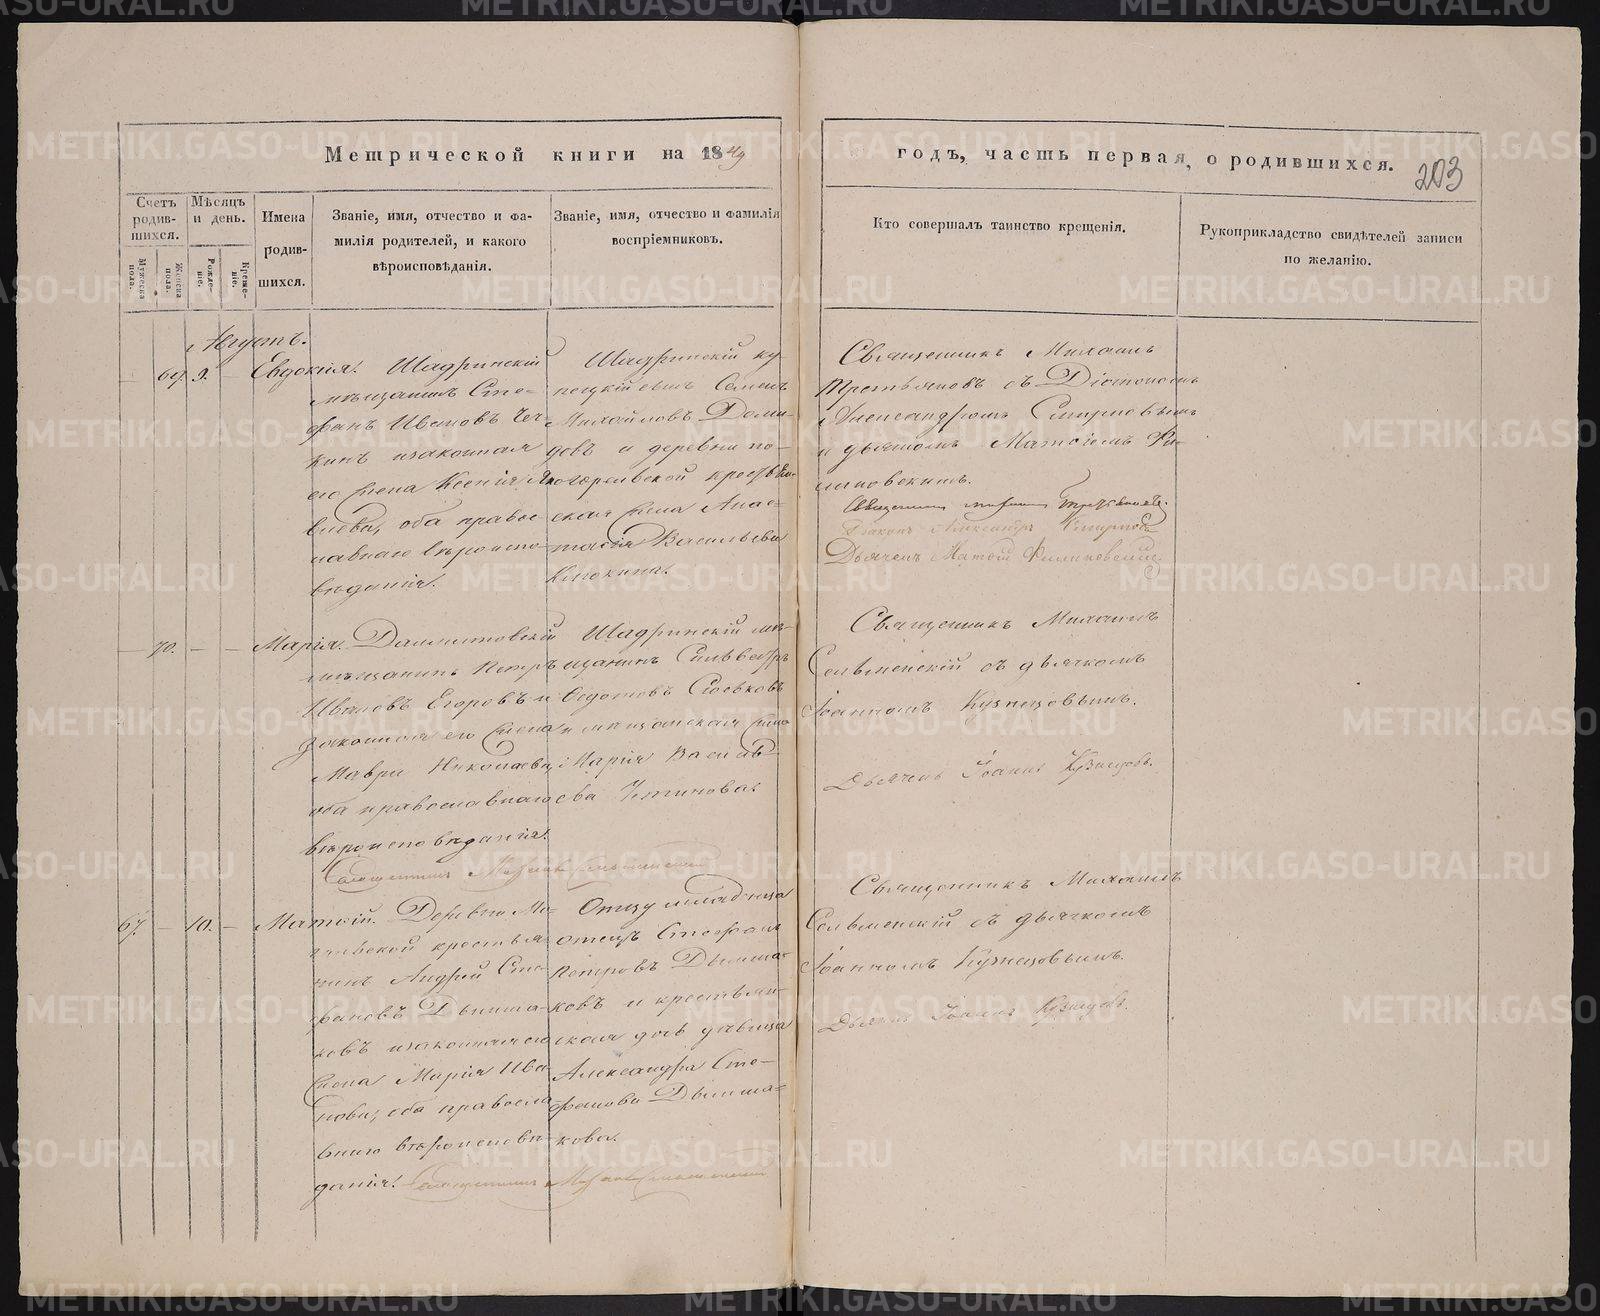 Метрической книги на 1849
годъ, часть первая, о родившихся.
203
Счетъ родившихся.
Мужеска пола.
Женска пола.
Мѣсяцъ и день.
Рожденіе.
Крещеніе.
Имена родившихся.
Званіе, имя, отчество и фамилія родителей, и какого вѣроисповѣданія.
Званіе, имя, отчество и фамилія воспріемниковъ.
Кто совершалъ таинство крещенія.
Рукоприкладство свидѣтелей записи по желанію.
Августъ.
69. 9. Евдокія.
Шадринскій
мѣщанинъ Сте-
фанъ Ивановъ
и законная
его жена Ксенія Яко-
влева, оба правос-
лавнаго вѣроиспо-
вѣданія.
Шадринскій ку-
пецкій сынъ Семенъ
Михайловъ
и деревни
крестьян-
ская жена Анас-
тасія Васильева
Священникъ Михаилъ
Третьяковъ съ Діакономъ
Александромъ Смирновымъ
и дьячкомъ Матѳіемъ Фи-
линовскимъ.
Священникъ Михаилъ Третьяковъ.
Діаконъ Александръ Смирновъ
Дьячекъ Матѳій Филиновскій
70. Марія.
Далматовскій
мѣщанинъ Петръ
Ивановъ Егоровъ и
законная его жена
Мавра Николаева,
оба православнаго
вѣроисповѣданія.
Шадринскій мѣ-
щанинъ Сильвестръ
Ѳедотовъ
и мѣщанская жена
Марія Василь-
ева
Священникъ Михаилъ
съ дьячкомъ
Іоанномъ Кузнецовымъ.
Дьячекъ Іоаннъ Кузнецовъ.
Священникъ Михаилъ
67. 10. Матѳій.
Деревни
крестья-
нинъ Андрей Сте-
фановъ Дымша-
ковъ и законная его
жена Марія Ива-
нова, оба правосла-
внаго вѣроисповѣ-
данія.
Отцу младенца
отецъ Стефанъ
Петровъ Дымша-
ковъ и крестьян-
ская дочь дѣвица
Александра Сте-
фанова Дымша-
кова.
Священникъ Михаилъ
съ дьячкомъ
Іоанномъ Кузнецовымъ.
Дьячекъ Іоаннъ Кузнецовъ.
Священникъ Михаилъ
METRIKI.GASO-URAL.RU